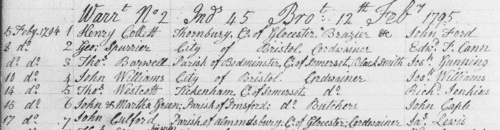 Warr.t N.o 2 Ind.s 45 Bro.t 12th Feb.y 1795
5 Feby. 1794 1 Henry Collett Thornbury, C.o of Glocester Brazier &c John Ford
8 d.o 2 Geo. Spurrier City of Bristol Cordwainer Edw.d T. Cann
d.o d.o 3 Tho.s Barwell Parish of Bedminster, C.o of Somerset, Black Smith Jos. Gunning
10 d.o 4 John Williams City of Bristol Cordwainer Jos. Williams
14 d.o 5 Tho.s Westcott Tickenham, C.o of Somerset d.o Rich.d Jenkins
15 d.o 6 John & Martha Green, Parish of Twyford: d.o Butchers John Caple
17 d.o 7 John Culford Parish of Almondsbury, C.o of Glocester: Cordwainer Ja.s Lewis